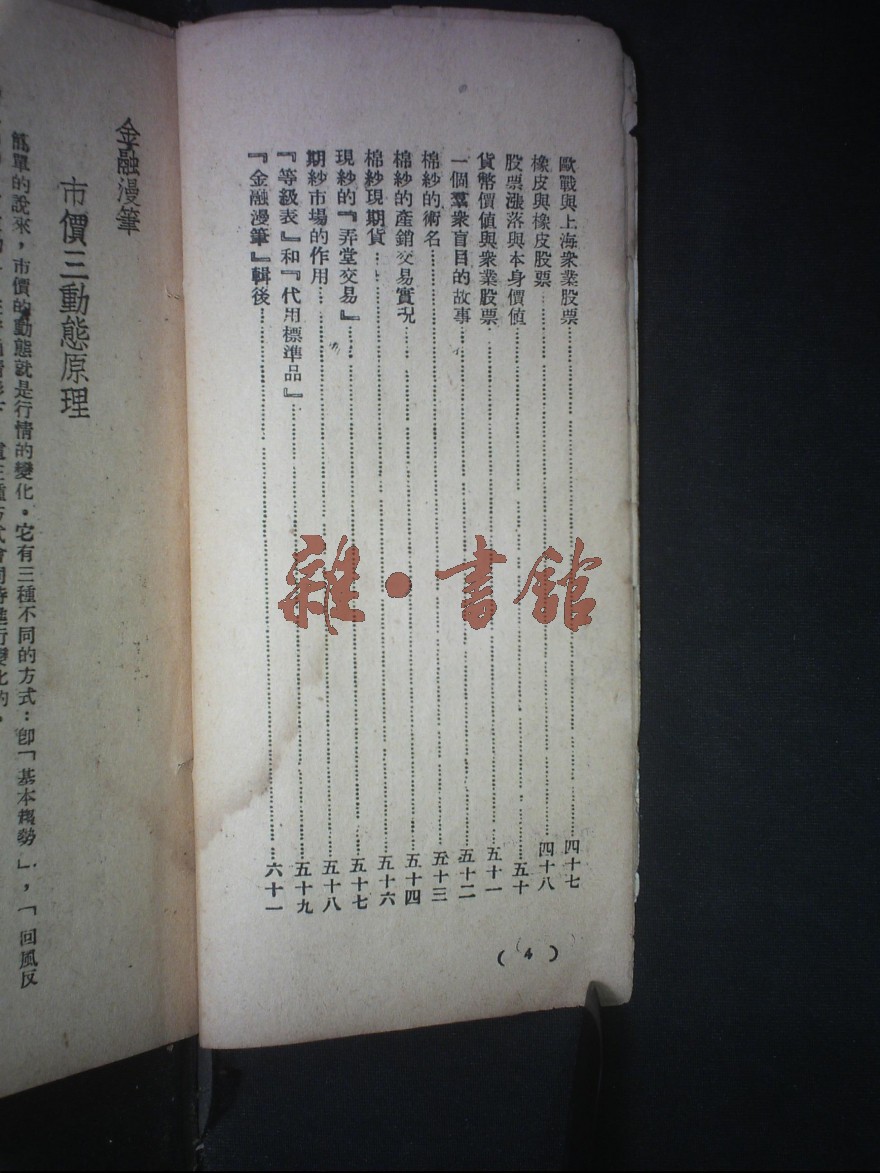 歐戰與上海衆業股票……四十七
橡皮與橡皮股票……四十八
股票漲落與本身價值……五十
貨幣價值與衆業股票……五十一
一個羣衆盲目的故事……五十二
棉紗的術名……五十三
棉紗的產銷交易實況……五十四
棉紗現期貨……五十六
現紗的『弄堂交易』……五十七
期紗市場的作用……五十八
『等級表』和『代用標準品』……五十九
『金融漫筆』輯後……六十一
( 4 )
金融漫筆
市價三動態原理
簡單的說來，市價的動態就是行情的變化。它有三種不同的方式：卽「基本趨勢」，「回風反
雜·書館